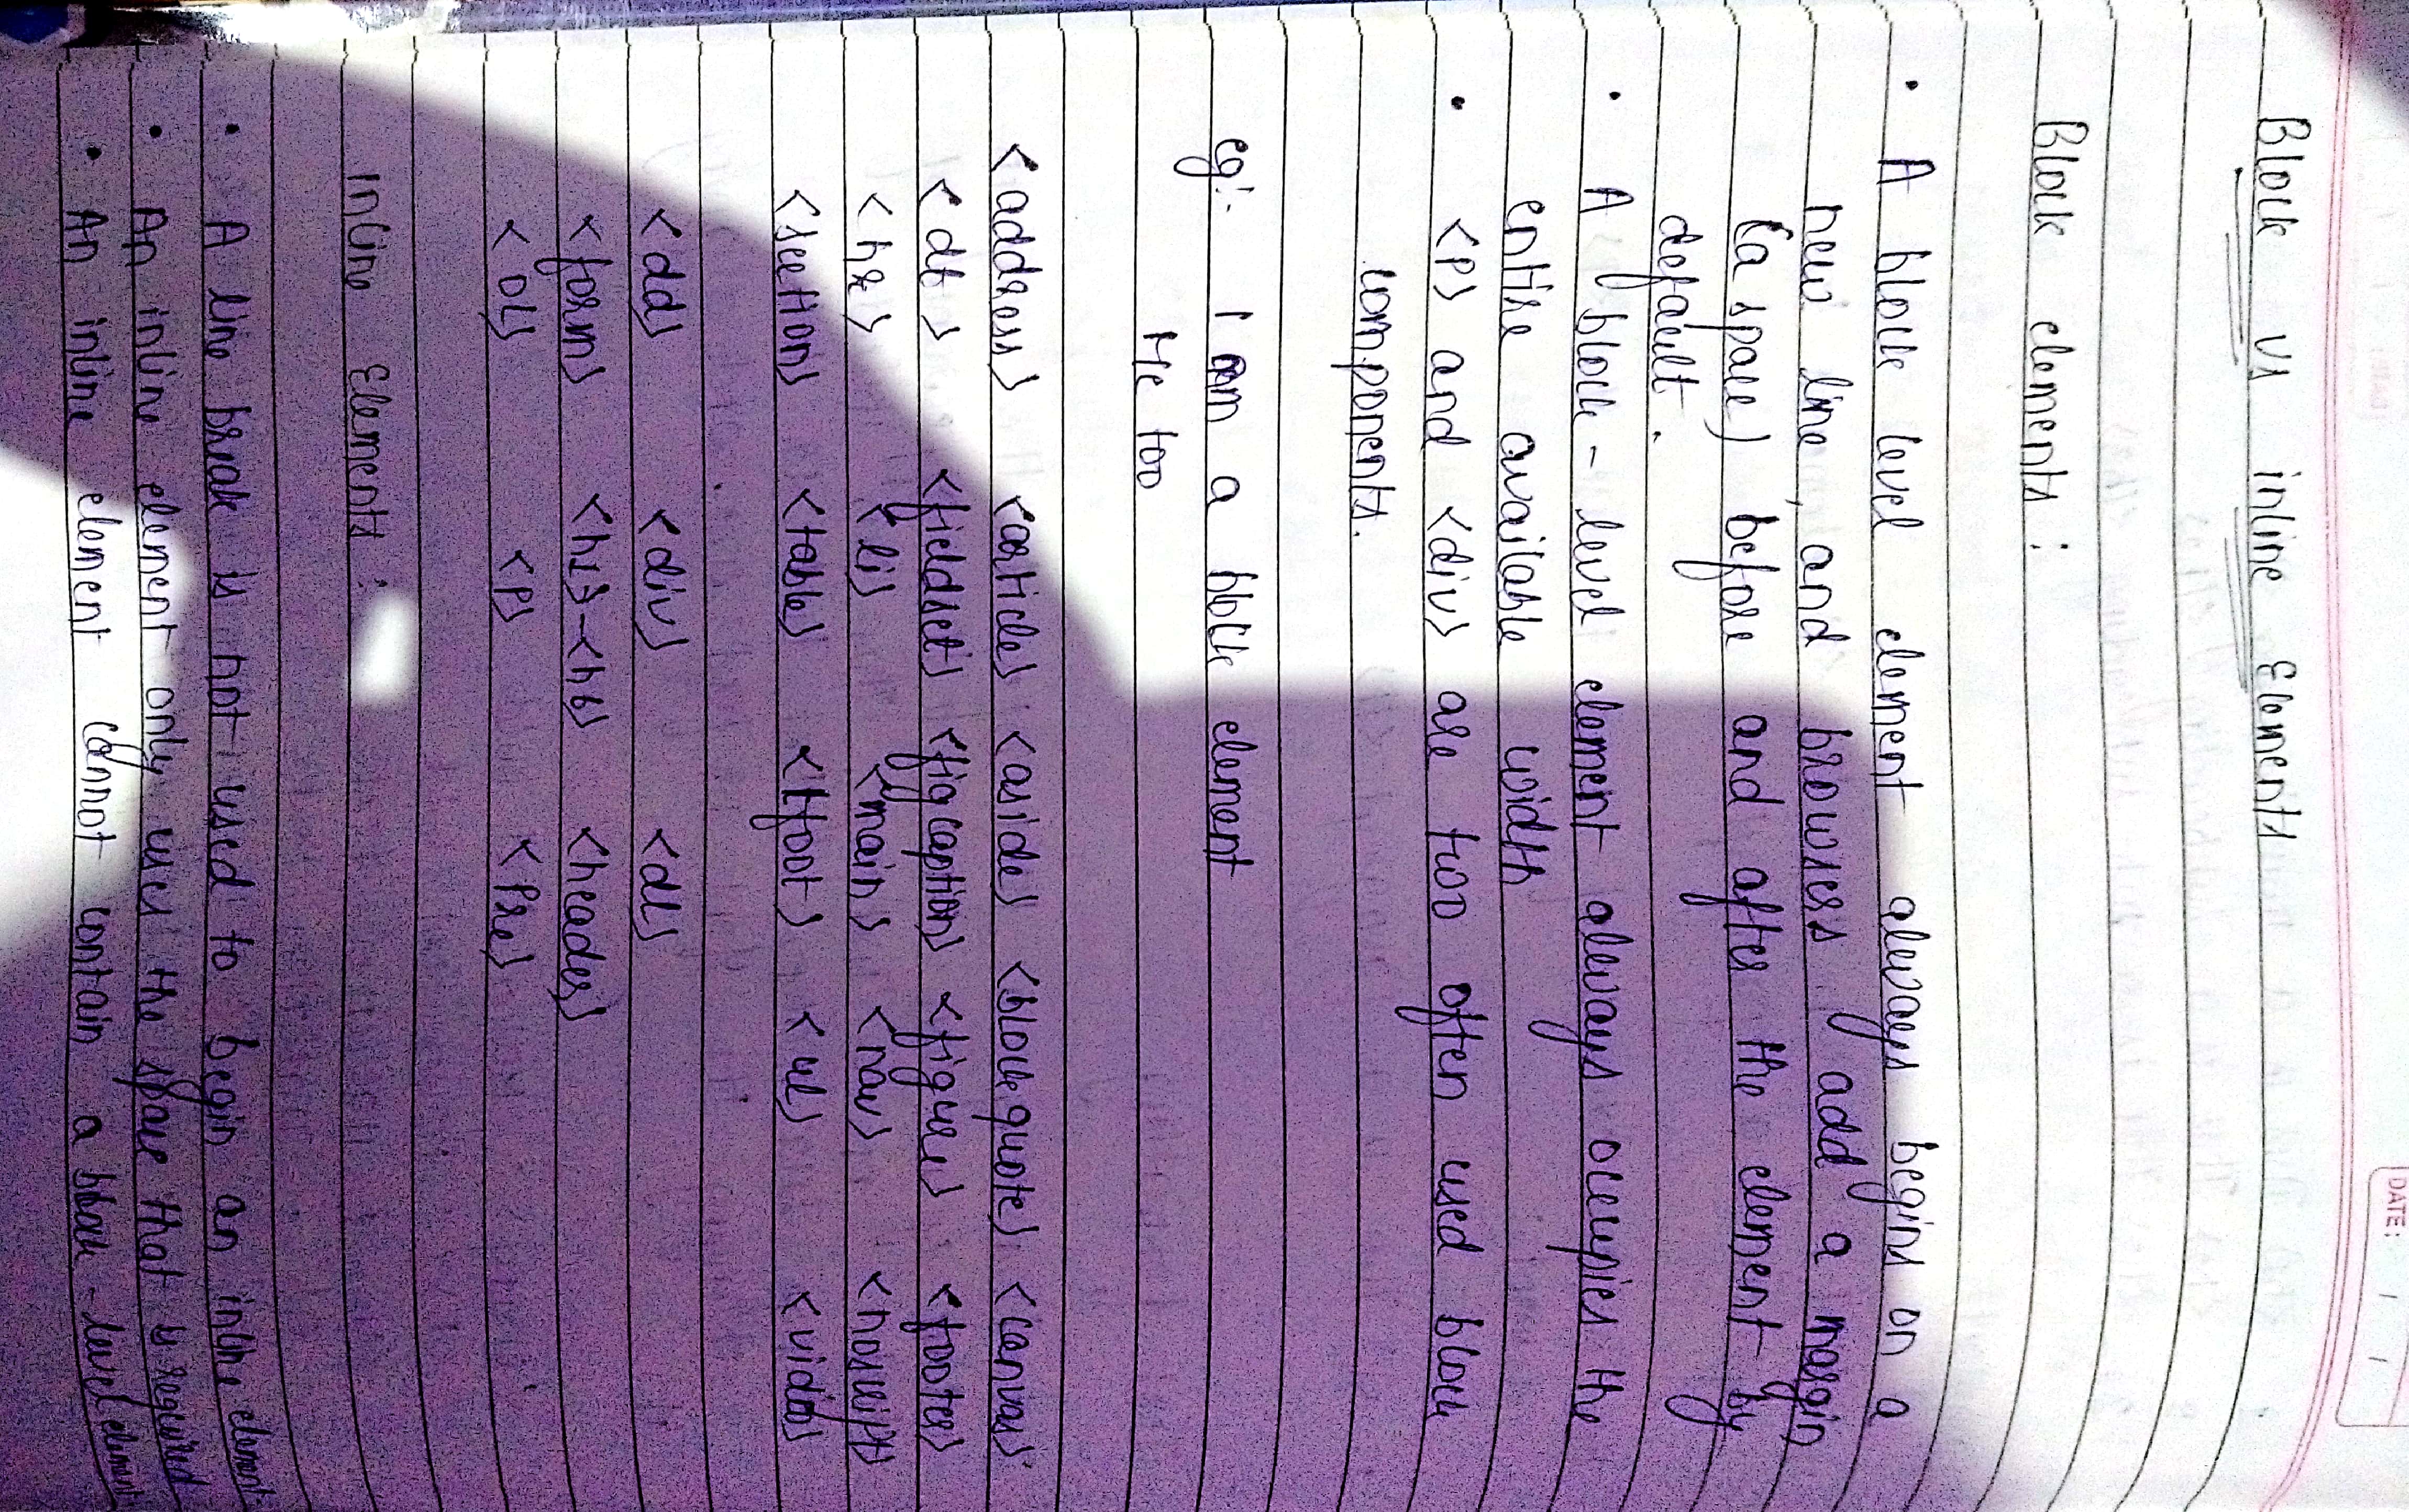 DATE: / /
Block vs inline Elements
Block elements :
• A block level element always begins on a
new line, and browsers add a margin
(a space) before and after the element by
default.
• A block-level element always occupies the
entire available width
• <p> and <div> are two often used block
components.
eg:- I am a block element
Me too
<address> <article> <aside> <blockquote> <canvas>
<dt> <fieldset> <figcaption> <figure> <footer>
<hr> <li> <main> <nav> <noscript>
<section> <table> <tfoot> <ul> <video>
<dd> <div> <dl>
<form> <h1>-<h6> <header>
<ol> <p> <pre>
Inline Elements :
• A line break is not used to begin an inline element
• An inline element only uses the space that is required
• An inline element cannot contain a block-level element